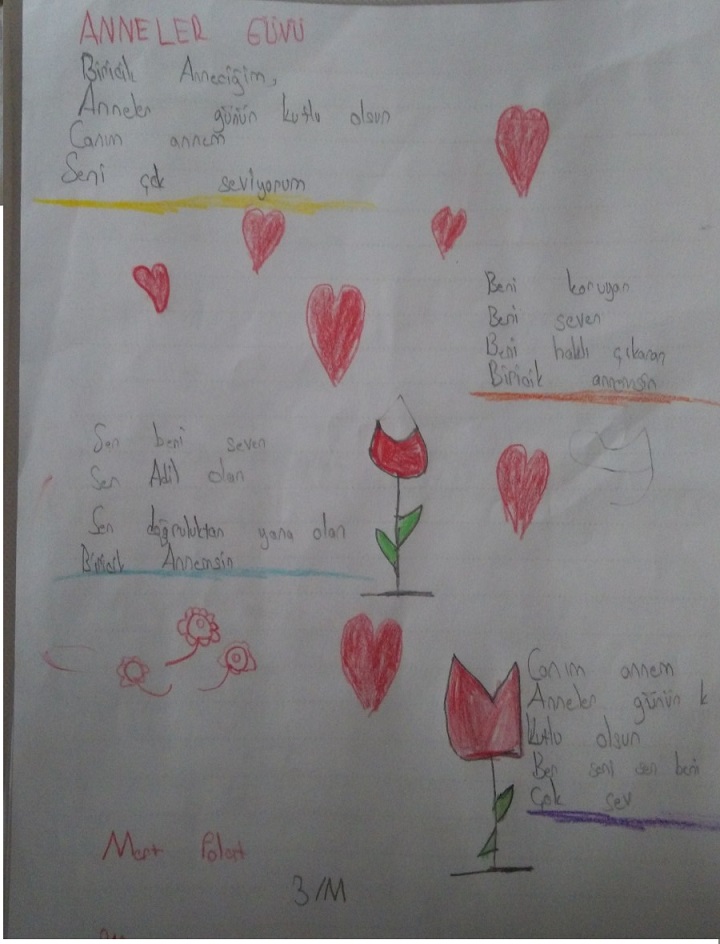 ANNELER GÜNÜ
Biricik Anneciğim,
Anneler günün kutlu olsun
Canım annem
Seni çok seviyorum
Beni koruyan
Beni seven
Beni haklı çıkaran
Biricik annemsin
Sen beni seven
Sen Adil olan
Sen doğruluktan yana olan
Biricik Annemsin
Canım annem
Anneler günün k
kutlu olsun
Ben seni sen beni
Çok sev
Mert Polat
3/M